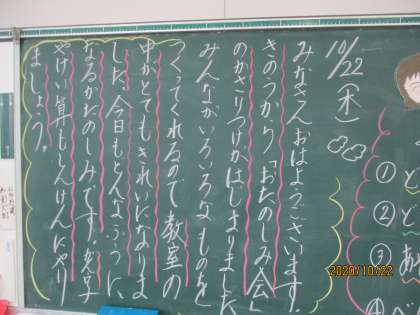 10/22(木)
みなさん、おはようございます。
きのうから「おたのしみ会」
のかざりつけがはじまりました。
みんながいろいろなものを
つくってくれるので教室の
中がとてもきれいになりま
した。今日もどんなふうに
なるかたのしみです。
やけい算もしんけんにやり
ましょう。
①
②
③
④
2020/10/22